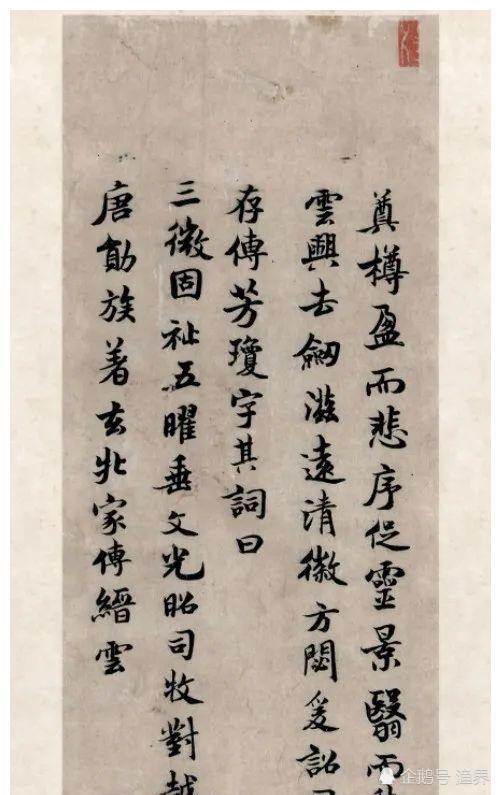 奠樽盈而悲序促靈景翳而
雲興去劒滋遠清徽方閟爰詔
存傳芳瓊字其詞曰
三微固祉五曜垂文光昭司牧對越
唐勛族著玄牝家傳縉雲
企鹅号